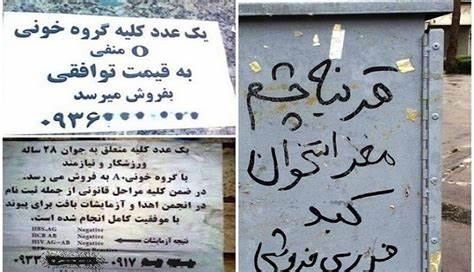 یک عدد کلیه گروه خونی
O منفی
به قیمت توافقی
بفروش میرسد
یک عدد کلیه متعلق به جوان ۲۸ ساله
ورزشکار و نیازمند
با گروه خونی ۸۰ به فروش می رسد.
در ضمن کلیه مراحل قانونی از جمله ثبت نام
در انجمن اهدا و آزمایشات بافت برای پیوند
با موفقیت کامل انجام شده است.
HBS.AG Negative
HCB AB Negative
HIV.AG-AB Negative
نتیجه آزمایشات
قرنیه چشم
مغز استخوان
کبد
فوری فروشی